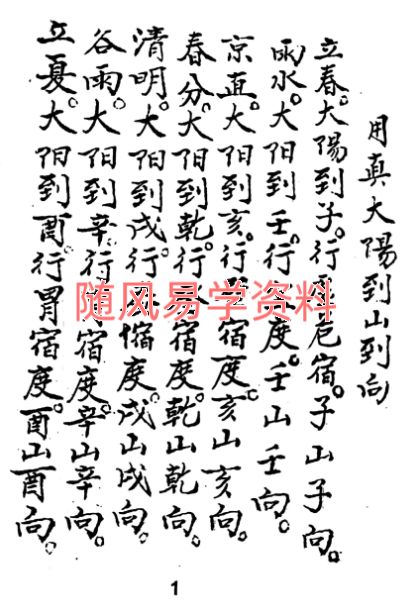 用真大陽到山到向
立春。大陽到子。行危宿。子山子向。
雨水。大阳到壬。行度。壬山壬向。
京直。大阳到亥。行宿度。亥山亥向。
春分。大阳到乾。行宿度。乾山乾向。
清明。大阳到戌。行度。戌山戌向。
谷雨。大阳到辛。行宿度。辛山辛向。
立夏。大阳到酉。行胃宿度。酉山酉向。
随风易学资料
1